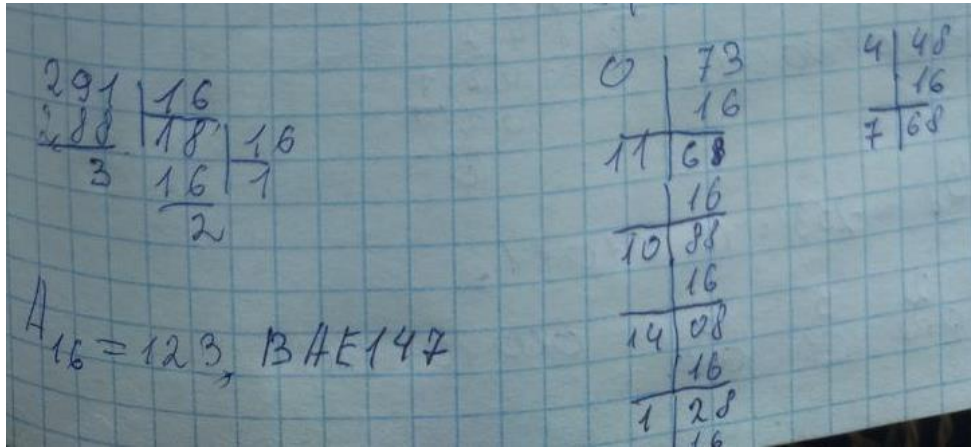 291 | 16
288 | 18 | 16
3 16 | 1
2
A₁₆ = 123, BAE147
0 | 73
16
11 | 68
16
10 | 88
16
14 | 08
16
1 | 28
16
4 | 48
16
7 | 68